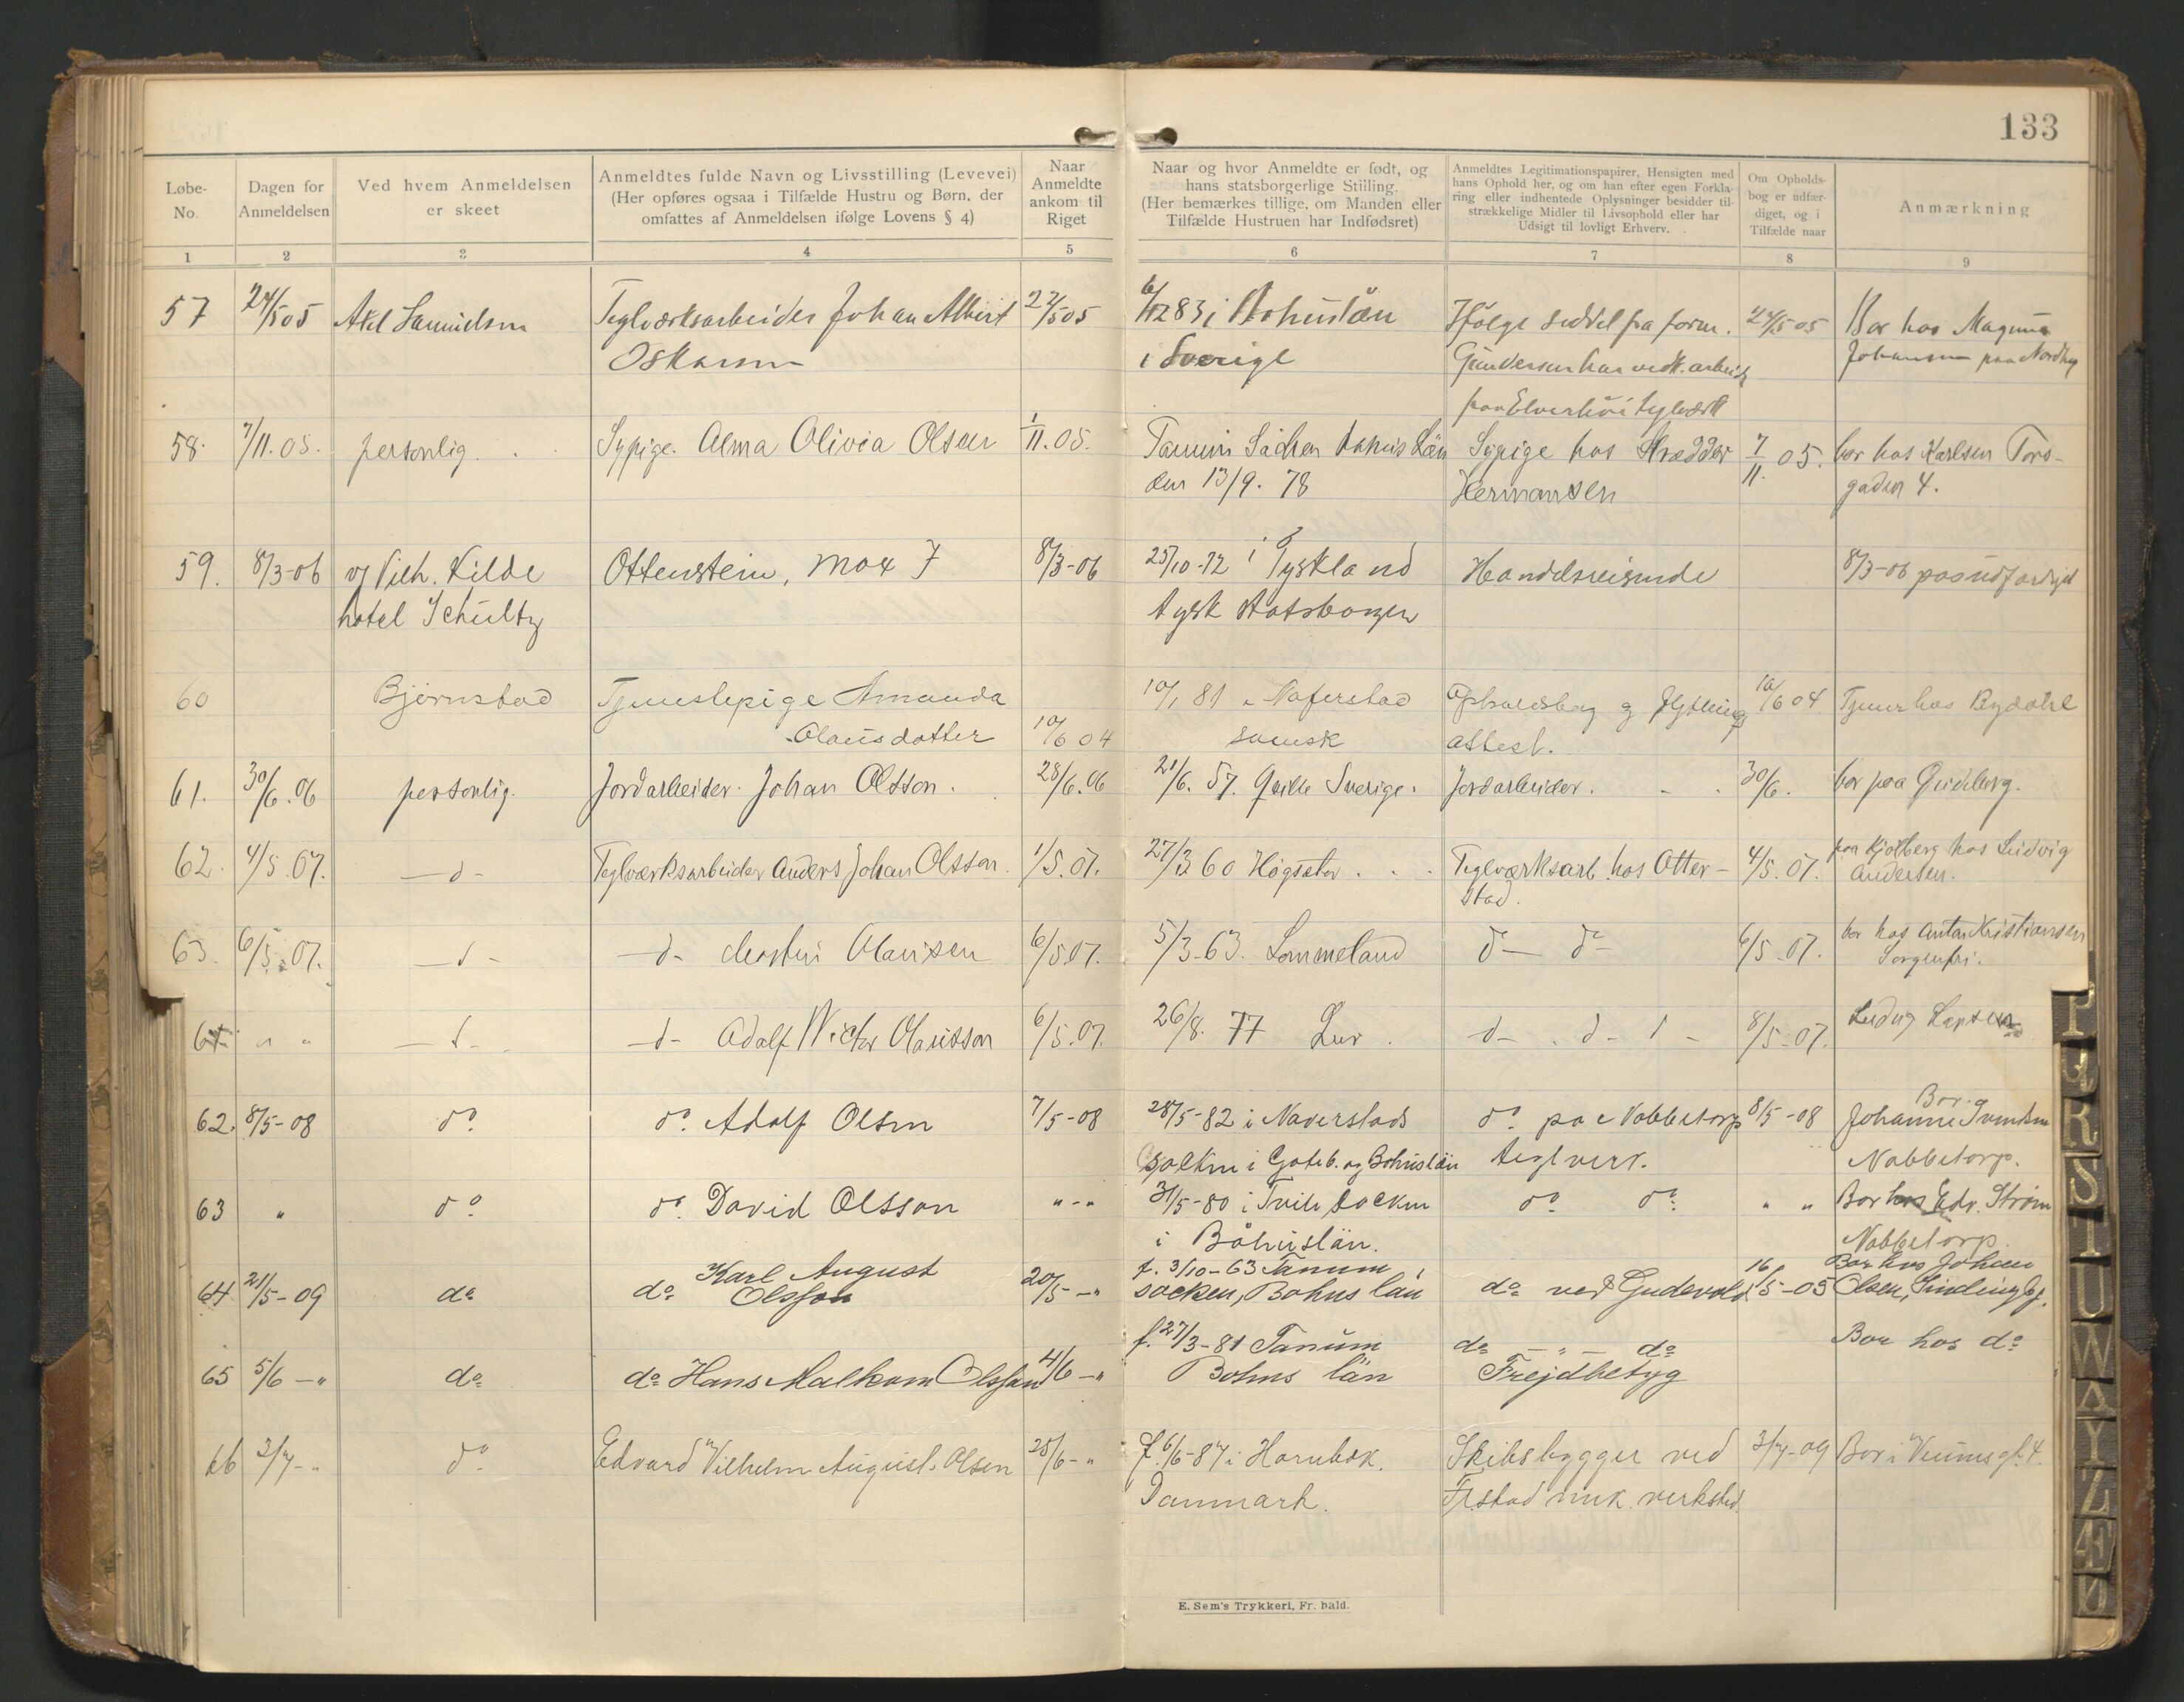 133
Løbe-No.
Dagen for Anmeldelsen
Ved hvem Anmeldelsen er skeet
Anmeldtes fulde Navn og Livsstilling (Levevei)
(Her opføres ogsaa i Tilfælde Hustru og Børn, der
omfattes af Anmeldelsen ifølge Lovens § 4)
Naar Anmeldte ankom til Riget
Naar og hvor Anmeldte er født, og
hans statsborgerlige Stilling.
(Her bemærkes tillige, om Manden eller
Tilfælde Hustruen har Indfødsret)
Anmeldtes Legitimationspapirer, Hensigten med
hans Ophold her, og om han efter egen Forkla-
ring eller indhentede Oplysninger besidder til-
strækkelige Midler til Livsophold eller har
Udsigt til lovligt Erhverv.
Om Opholds-
bog er udfær-
diget, og i
Tilfælde naar
Anmærkning
1 2 3 4 5 6 7 8 9
57 24/5 05 Axel Samuelsen Teglværksarbeider Johan Albert 22/5 05 6/12 83 i Bohuslän Ifølge seddel fra form. 24/5 05 Bor hos Magnus
i Sverige Johansen paa Nordby
paa Elverhöi teglværk
58. 7/11.05. personlig. Sypige. Alma Olivia Olsen 1/11.05. Sypige hos Skrædder 7/11.05. bor hos Karlsen Tors-
den 13/9. 78 Hermansen gaden 4.
59. 8/3-06 v/ Vilh. Kilde Ottenstein, Max J 8/3-06 25/10-72 i Tyskland Handelsreisende 8/3-06 pas udfærdiget
hotel Schultz tysk statsborger
60 Bjørnstad Tjenestepige Amanda 10/1 81 Naferstad Opholdsbog og flytnings 10/6 04 Tjener hos Bydahl
Olausdatter 10/6 04 svensk attest.
61. 30/6.06 personlig. Jordarbeider Johan Olsson. 28/6.06 21/6. 57. Qville Sverige. Jordarbeider. 30/6. bor paa Gudeberg.
62. 4/5.07. -d- Teglværksarbeider Anders Johan Olsson 1/5.07. 27/3 60 Högsäter Teglværksarb. hos Otter- 4/5.07. paa Kjølberg hos Ludvig
stad. Andersen.
63. 6/5.07. -d- -d- Olausen 6/5 07. 5/3-63. Lommeland do do 6/5.07. bor hos Anton Kristiansen
Sorgenfri.
64 " " -d- -d- Adolf Victor Olausson 6/5.07. 26/8. 77 Lur d- d- d- 8/5-07. Ludvig
62. 8/5-08 do do. Adolf Olsen 7/5-08 28/5-82 i Naverstads do. paa Nabbetorp 8/5-08 Bor
Johanne Svendsen
socken i Göteb. og Bohuslän teglverk. Nabbetorp.
63 " do do. David Olsson "-" 31/5-80 i socken do. do. " " Bor hos Edv. Strøm
i Bohuslän. Nabbetorp.
64 21/5-09 do do Karl August
Olsson 20/5-" f. 3/10-63 Tanum
socken, Bohus län do ved Gudevold 16/5-05 Bor hos Johan
Olsen,
65 5/6-" do do Hans Malkom Olsson 4/6-" f. 27/3-81 Tanum do -"- do Bor hos do
Bohus län Frejdbetyg
66 3/7-" do Edvard Vilhelm August. Olsen 25/6-" f. 6/6-87 i Hornbæk. Skibsbygger ved 3/7-09 Bor i
Danmark. Fr.stad mek. verksted
E. Sem's Trykkeri, Fr.hald.
P
Q
R
S
T
U
W
A
Y
Z
Æ
Ø